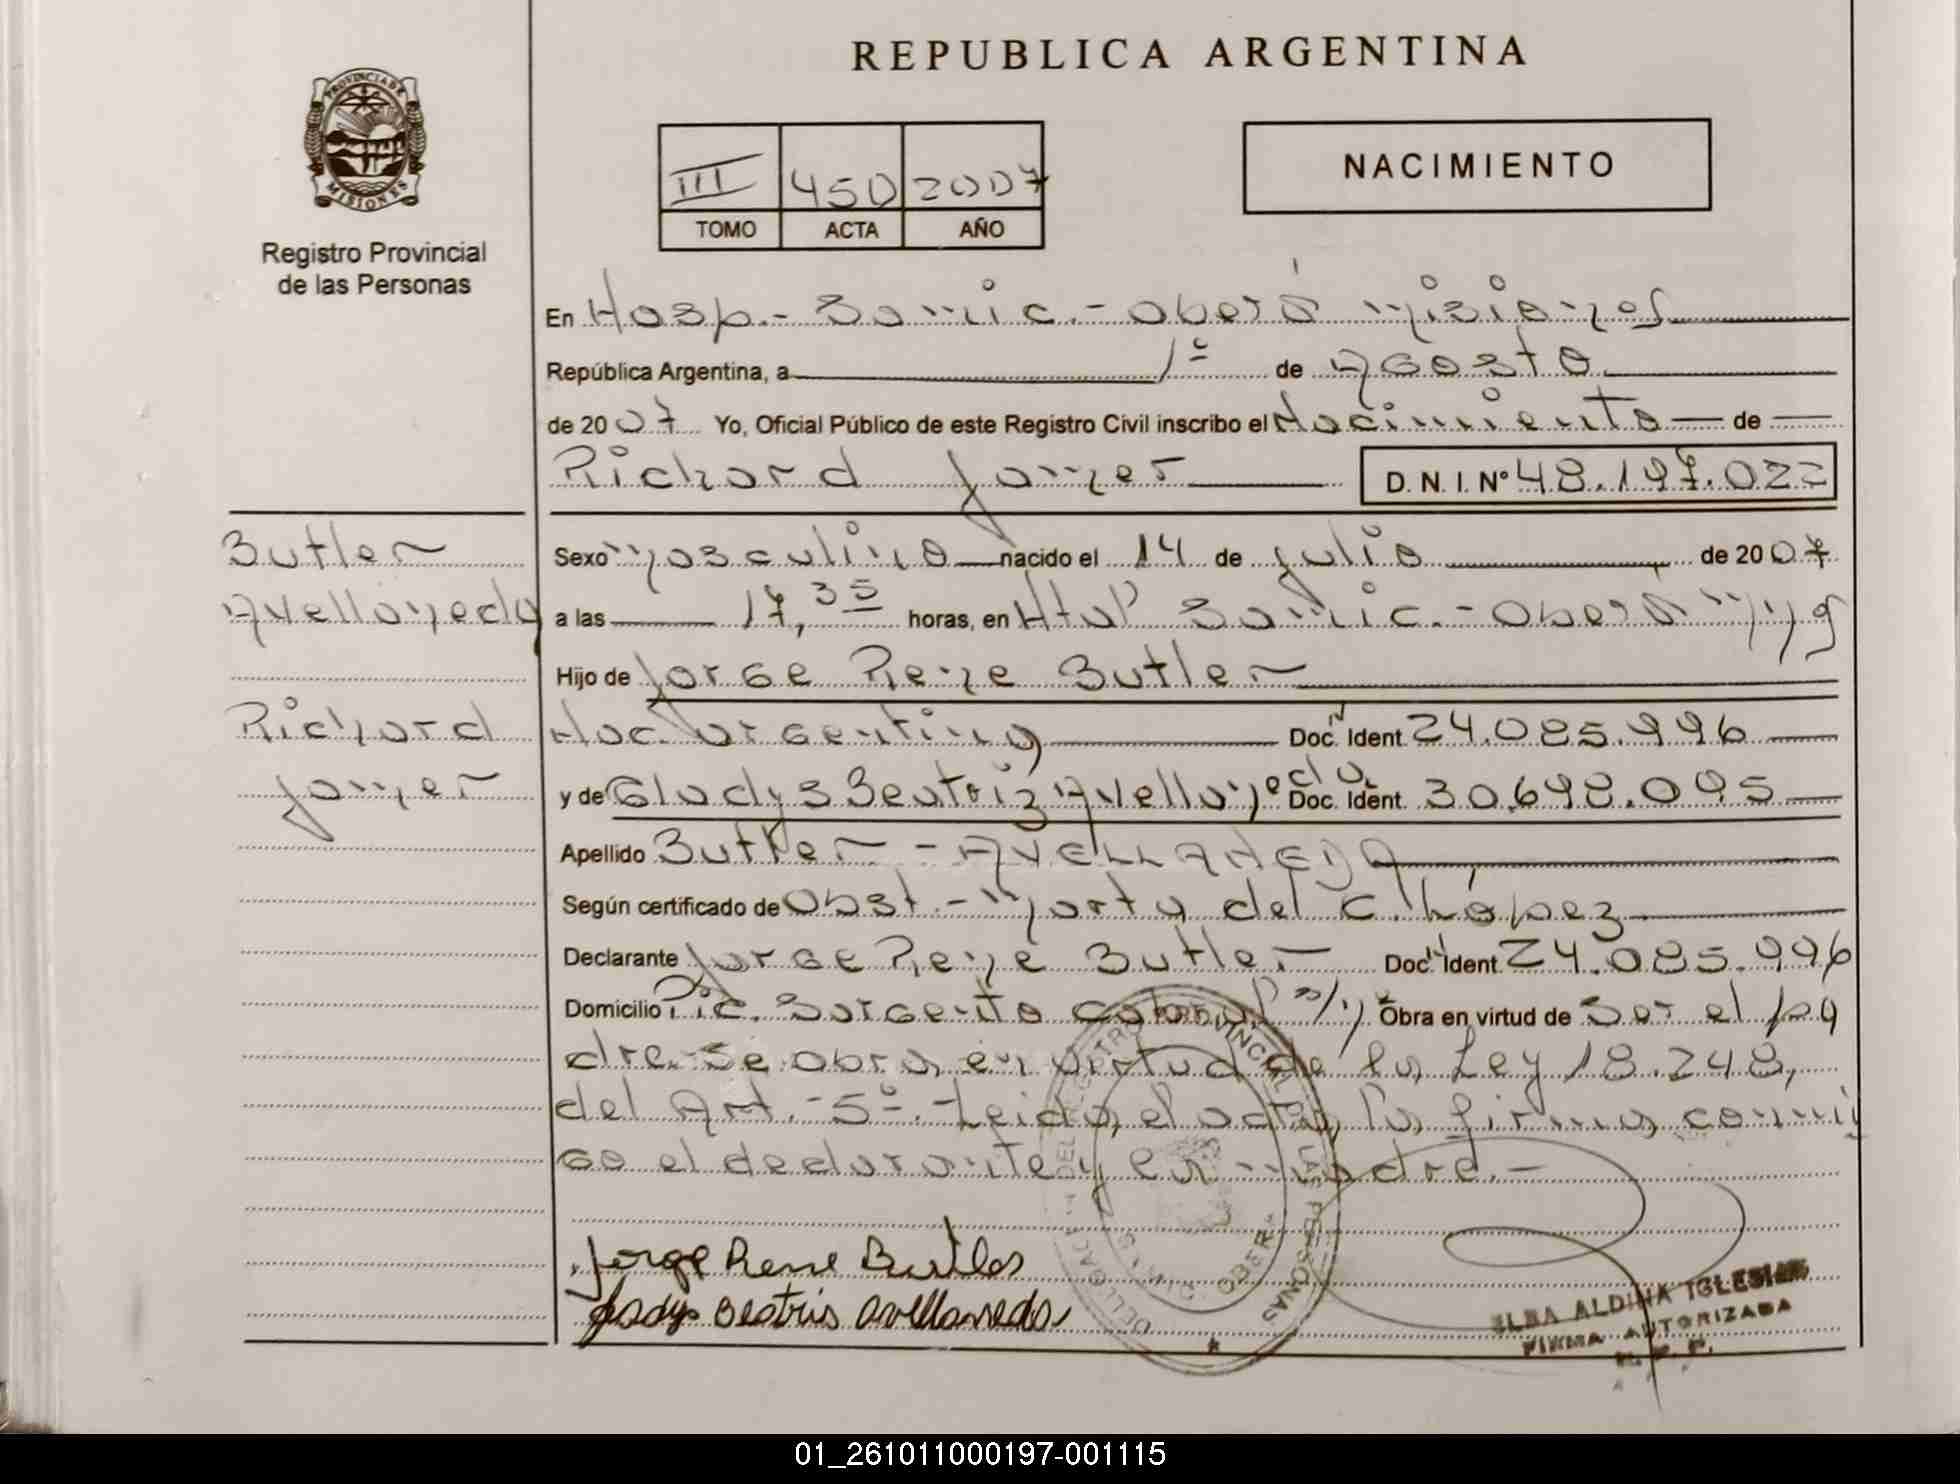 REPUBLICA ARGENTINA
PROVINCIA DE MISIONES
Registro Provincial
de las Personas
III 450 2007
TOMO ACTA AÑO
NACIMIENTO
En Hosp.- Samic.- Oberá Misiones
República Argentina, a 1º de Agosto
de 2007 Yo, Oficial Público de este Registro Civil inscribo el Nacimiento de
Richard D. N. I. Nº 48.197.022
Butler
Avellaneda
Richard
Sexo Masculino nacido el 14 de Julio de 2007
a las 17,35 horas, en Samic.- Oberá
Hijo de Jorge Rene Butler
Nac. Argentina Doc. Ident. 24.085.996
y de Gladys Beatriz Avellaneda Doc. Ident. 30.698.095
Apellido Butler - AVELLANEDA
Según certificado de Obst.- Marta del C. López
Declarante Jorge René Butler Doc. Ident. 24.085.996
Domicilio Pic. Sargento Cabral s/n Obra en virtud de Ser el pa
dre.- Se obra en virtud de la Ley 18.248,
del Art.- 5º.- Leida el acta, la firma conmi
go el declarante y la madre.-
Jorge Rene Butler
Gladys Beatris Avellaneda
DELEGACION DEL REGISTRO PROVINCIAL DE LAS PERSONAS
ELBA ALDINA IGLESIAS
FIRMA AUTORIZADA
01_261011000197-001115